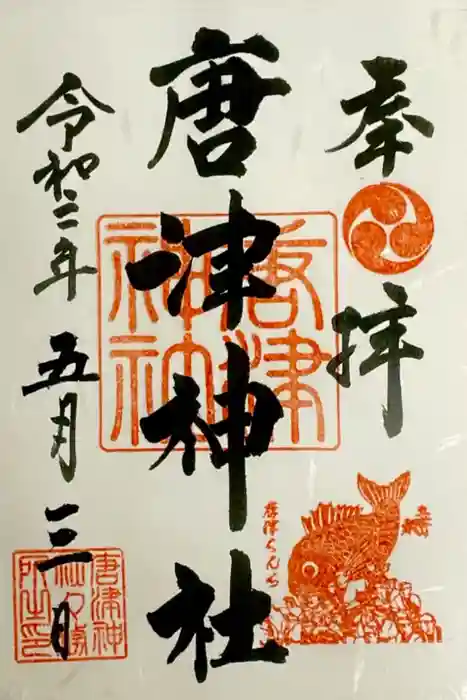 奉拝
唐津神社
唐津神社
令和二年五月三日
唐津くんち
唐津神
社々務
所之印